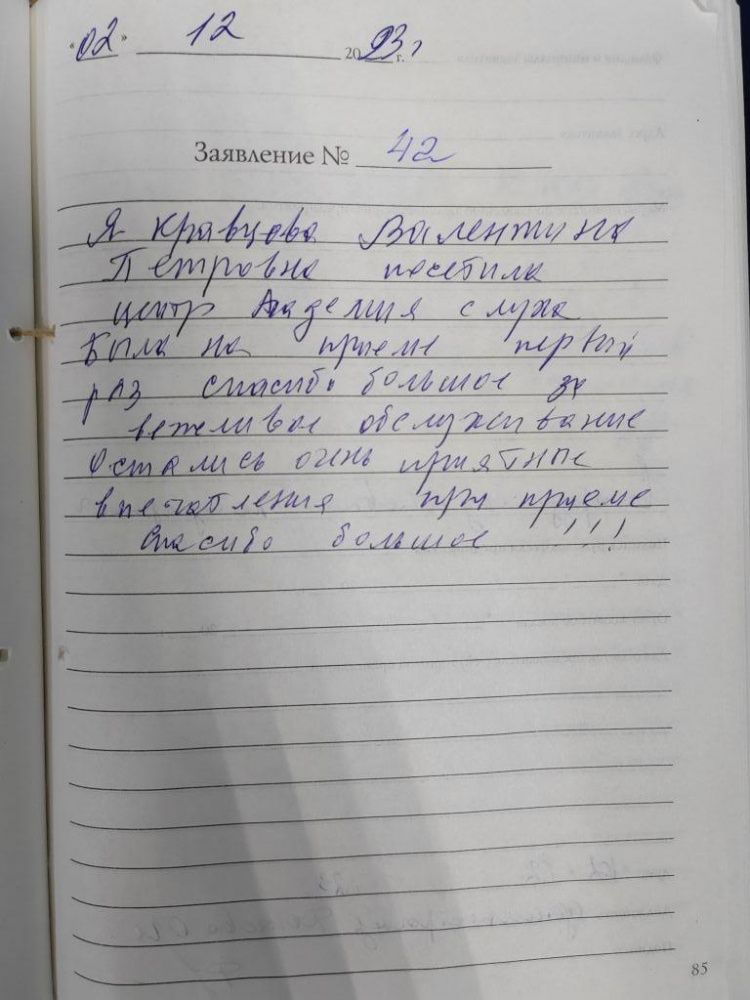 «02» 12 2023 г.
Заявление № 42
Я Кравцова Валентина
Петровна посетила
центр Академия слуха
была на приеме первый
раз спасибо большое за
вежливое обслуживание
Остались очень приятные
впечатления при приеме
Спасибо большое !!!
85